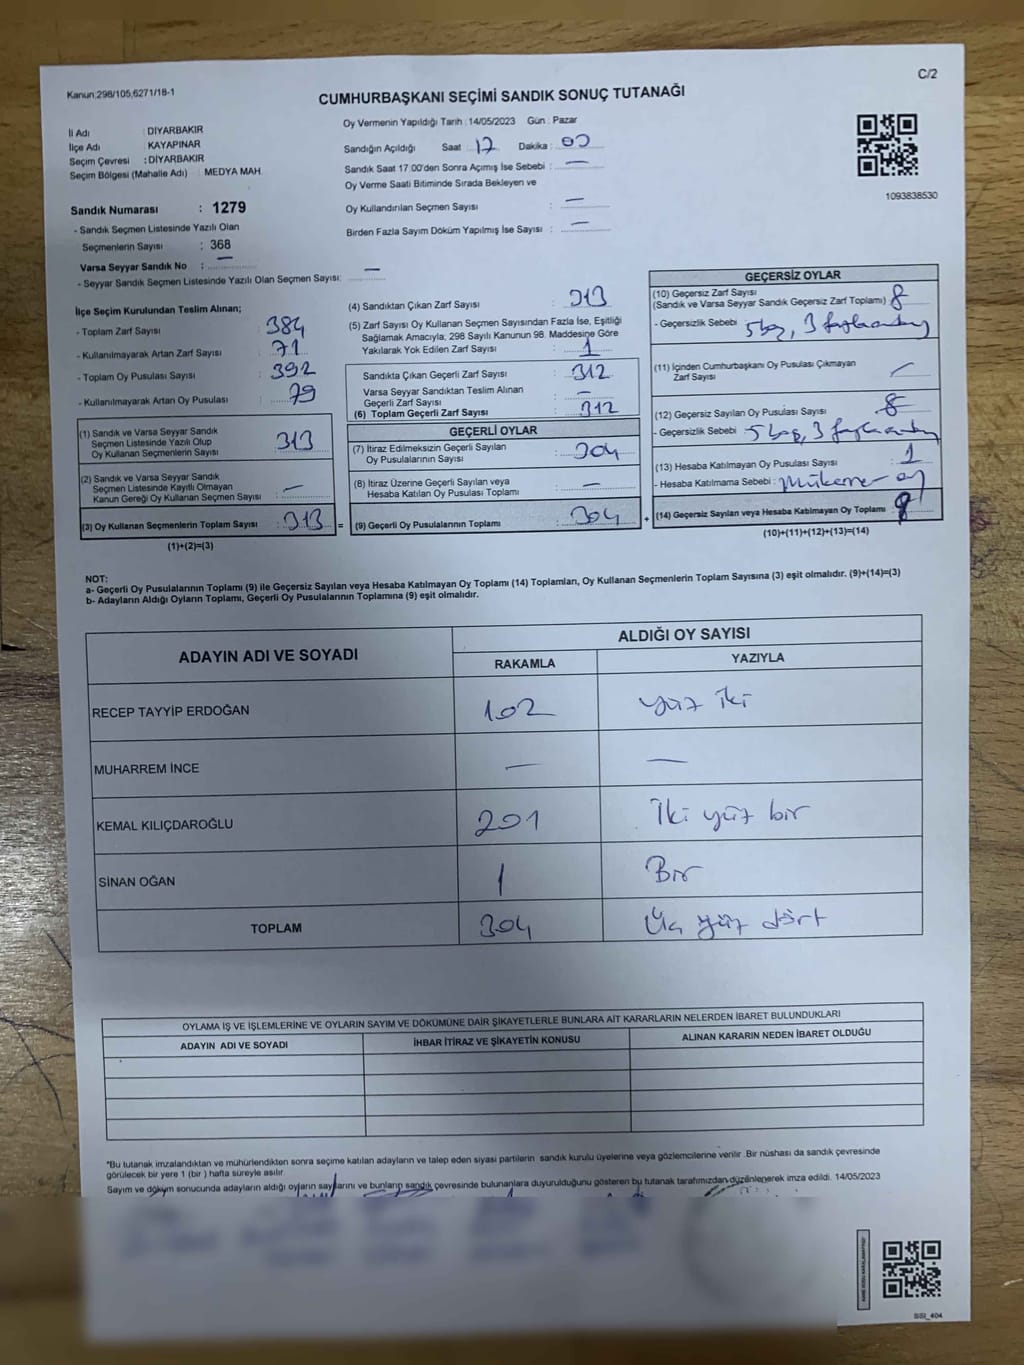 C/2
Kanun:298/105,6271/18-1
CUMHURBAŞKANI SEÇİMİ SANDIK SONUÇ TUTANAĞI
İl Adı : DİYARBAKIR
İlçe Adı : KAYAPINAR
Seçim Çevresi : DİYARBAKIR
Seçim Bölgesi (Mahalle Adı) : MEDYA MAH.
Sandık Numarası : 1279
- Sandık Seçmen Listesinde Yazılı Olan
Seçmenlerin Sayısı : 368
Varsa Seyyar Sandık No : —
- Seyyar Sandık Seçmen Listesinde Yazılı Olan Seçmen Sayısı: —
Oy Vermenin Yapıldığı Tarih : 14/05/2023 Gün : Pazar
Sandığın Açıldığı Saat : 17 Dakika : 00
Sandık Saat 17:00'den Sonra Açımış İse Sebebi : —
Oy Verme Saati Bitiminde Sırada Bekleyen ve
Oy Kullandırılan Seçmen Sayısı : —
Birden Fazla Sayım Döküm Yapılmış İse Sayısı : —
1093838530
İlçe Seçim Kurulundan Teslim Alınan;
- Toplam Zarf Sayısı : 384
- Kullanılmayarak Artan Zarf Sayısı : 71
- Toplam Oy Pusulası Sayısı : 392
- Kullanılmayarak Artan Oy Pusulası : 79
(1) Sandık ve Varsa Seyyar Sandık
Seçmen Listesinde Yazılı Olup
Oy Kullanan Seçmenlerin Sayısı : 313
(2) Sandık ve Varsa Seyyar Sandık
Seçmen Listesinde Kayıtlı Olmayan
Kanun Gereği Oy Kullanan Seçmen Sayısı : —
(3) Oy Kullanan Seçmenlerin Toplam Sayısı : 313 =
(1)+(2)=(3)
(4) Sandıktan Çıkan Zarf Sayısı : 313
(5) Zarf Sayısı Oy Kullanan Seçmen Sayısından Fazla İse, Eşitliği
Sağlamak Amacıyla; 298 Sayılı Kanunun 98. Maddesine Göre
Yakılarak Yok Edilen Zarf Sayısı : 1
Sandıkta Çıkan Geçerli Zarf Sayısı : 312
Varsa Seyyar Sandıktan Teslim Alınan
Geçerli Zarf Sayısı : —
(6) Toplam Geçerli Zarf Sayısı : 312
GEÇERLİ OYLAR
(7) İtiraz Edilmeksizin Geçerli Sayılan
Oy Pusulalarının Sayısı : 304
(8) İtiraz Üzerine Geçerli Sayılan veya
Hesaba Katılan Oy Pusulası Toplamı : —
(9) Geçerli Oy Pusulalarının Toplamı : 304 +
GEÇERSİZ OYLAR
(10) Geçersiz Zarf Sayısı
(Sandık ve Varsa Seyyar Sandık Geçersiz Zarf Toplamı) : 8
- Geçersizlik Sebebi : 5 boş, 3
(11) İçinden Cumhurbaşkanı Oy Pusulası Çıkmayan
Zarf Sayısı : —
(12) Geçersiz Sayılan Oy Pusulası Sayısı : 8
- Geçersizlik Sebebi : 5 boş, 3
(13) Hesaba Katılmayan Oy Pusulası Sayısı : 1
- Hesaba Katılmama Sebebi : Mükerrer oy
(14) Geçersiz Sayılan veya Hesaba Katılmayan Oy Toplamı : 9
(10)+(11)+(12)+(13)=(14)
NOT:
a- Geçerli Oy Pusulalarının Toplamı (9) ile Geçersiz Sayılan veya Hesaba Katılmayan Oy Toplamı (14) Toplamları, Oy Kullanan Seçmenlerin Toplam Sayısına (3) eşit olmalıdır. (9)+(14)=(3)
b- Adayların Aldığı Oyların Toplamı, Geçerli Oy Pusulalarının Toplamına (9) eşit olmalıdır.
ADAYIN ADI VE SOYADI
ALDIĞI OY SAYISI
RAKAMLA YAZIYLA
RECEP TAYYİP ERDOĞAN 102 yüz iki
MUHARREM İNCE — —
KEMAL KILIÇDAROĞLU 201 İki yüz bir
SİNAN OĞAN 1 Bir
TOPLAM 304 Üç yüz dört
OYLAMA İŞ VE İŞLEMLERİNE VE OYLARIN SAYIM VE DÖKÜMÜNE DAİR ŞİKAYETLERLE BUNLARA AİT KARARLARIN NELERDEN İBARET BULUNDUKLARI
ADAYIN ADI VE SOYADI İHBAR İTİRAZ VE ŞİKAYETİN KONUSU ALINAN KARARIN NEDEN İBARET OLDUĞU
*Bu tutanak imzalandıktan ve mühürlendikten sonra seçime katılan adayların ve talep eden siyasi partilerin sandık kurulu üyelerine veya gözlemcilerine verilir. Bir nüshası da sandık çevresinde
görülecek bir yere 1 (bir ) hafta süreyle asılır.
Sayım ve döküm sonucunda adayların aldığı oyların sayılarını ve bunların sandık çevresinde bulunanlara duyurulduğunu gösteren bu tutanak tarafımızdan düzenlenerek imza edildi. 14/05/2023
SSI_404